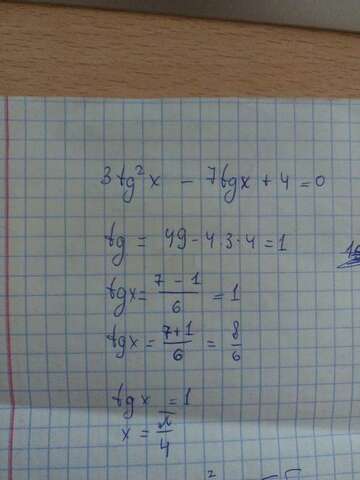 3tg²x - 7tgx + 4 = 0
tg = 49 - 4·3·4 = 1
tgx = (7 - 1)/6 = 1
tgx = (7+1)/6 = 8/6
tgx = 1
x = π/4